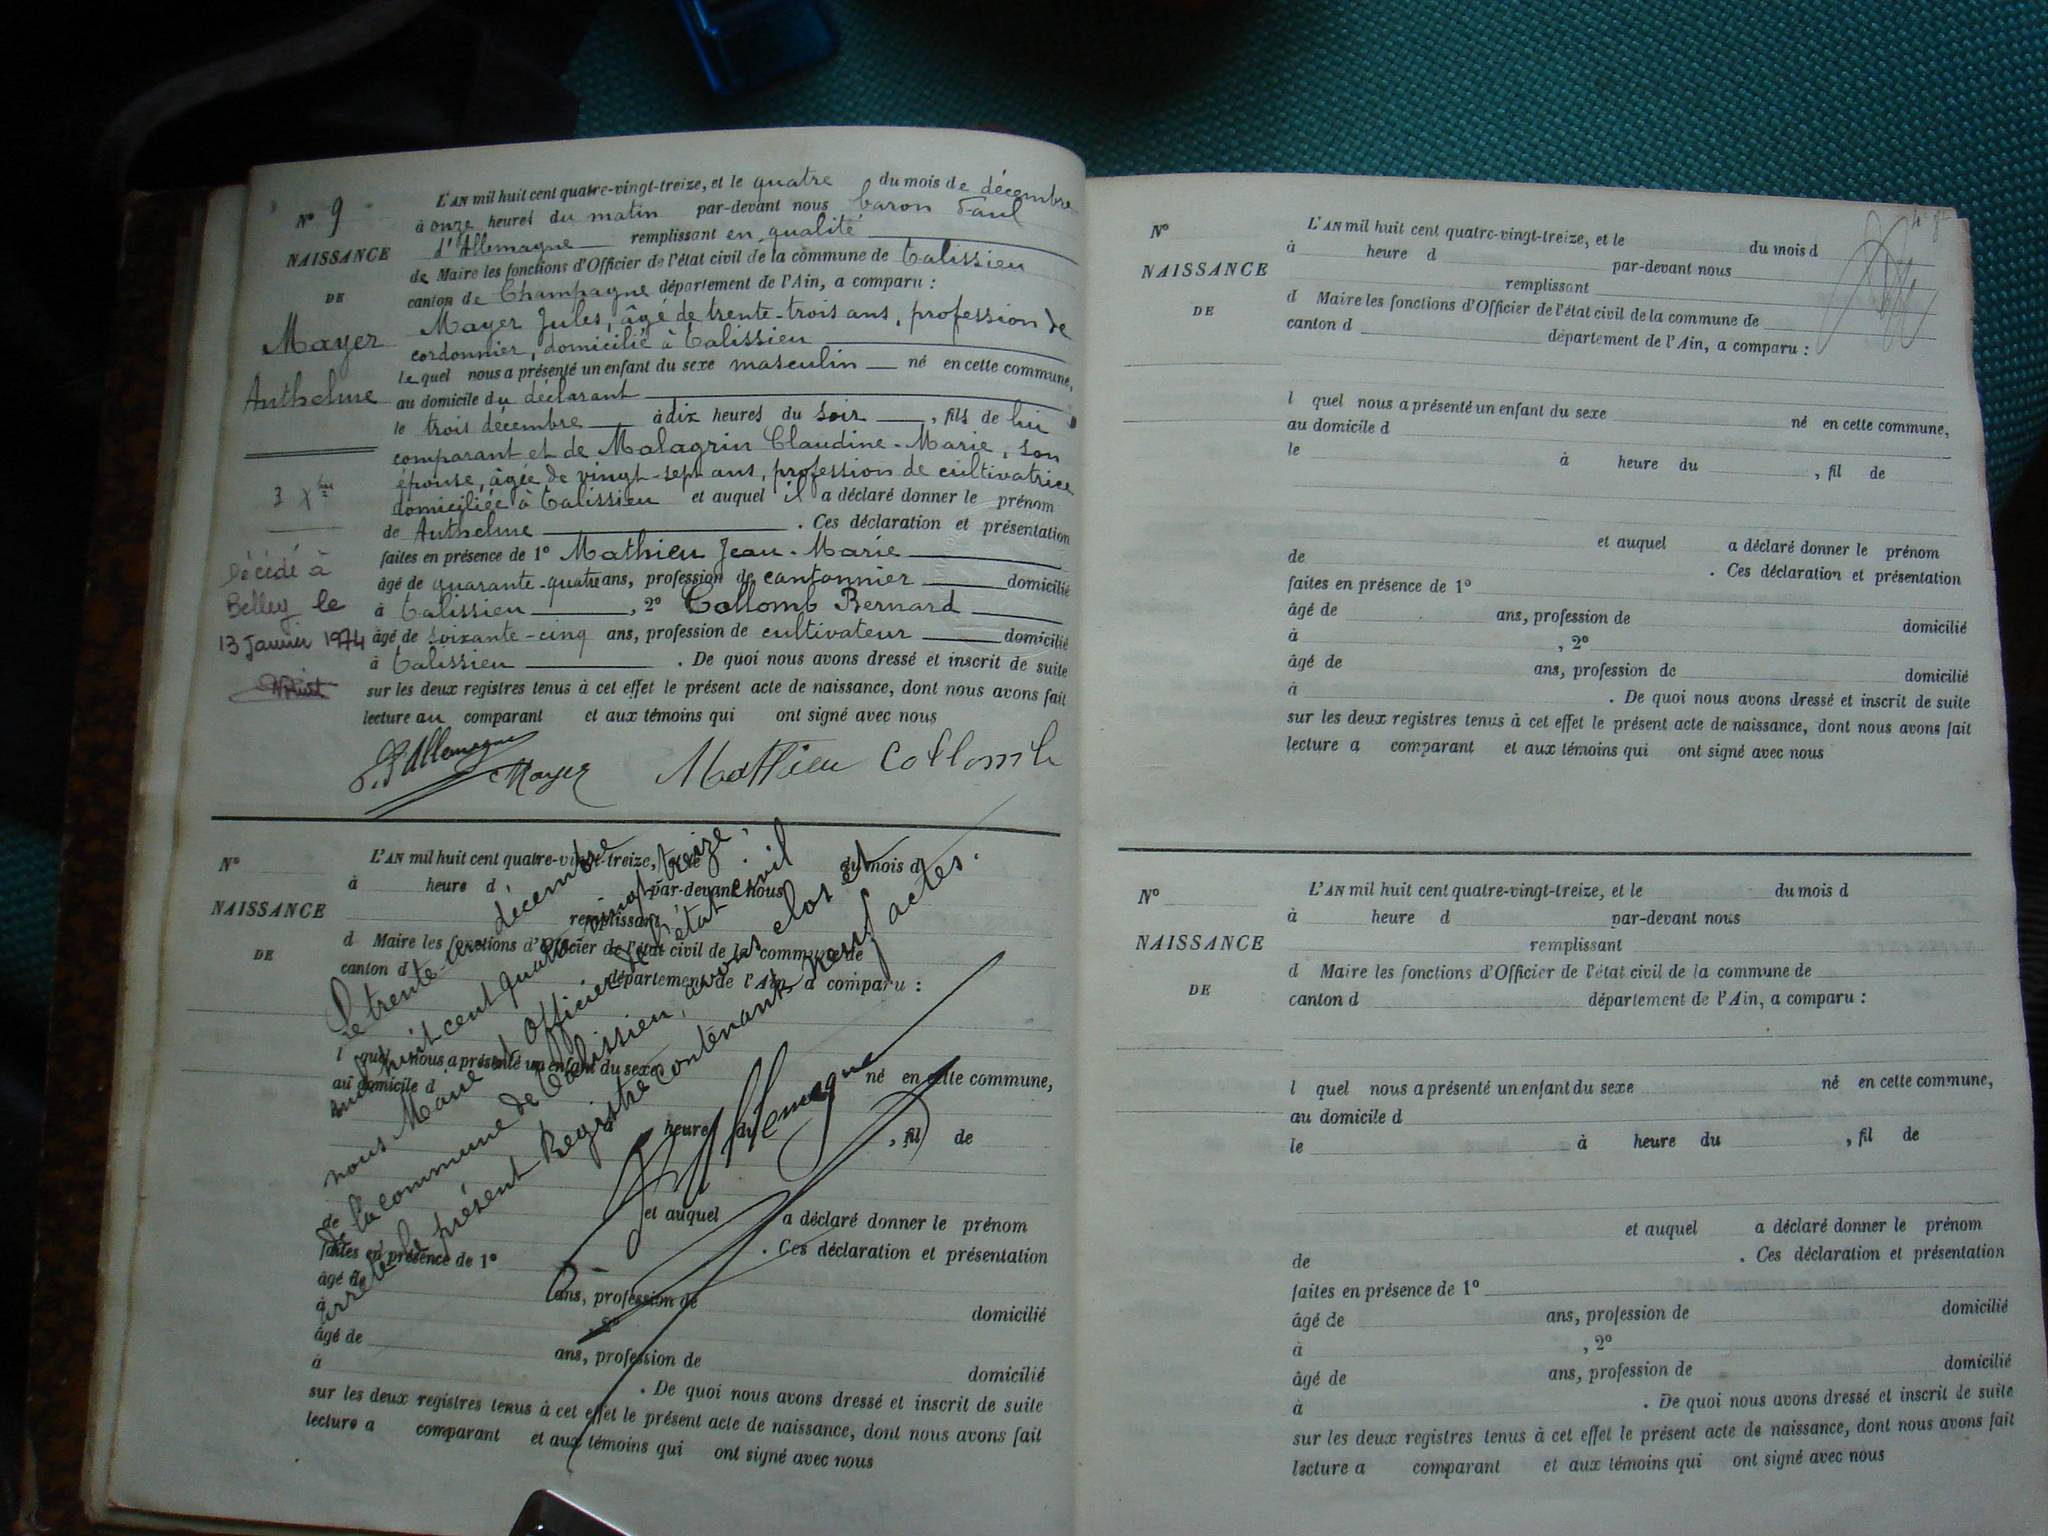 N° 9
NAISSANCE
DE
Mayer
Anthelme
3 Xbre
Décédé à
Belley le
13 Janvier 1974
L'AN mil huit cent quatre-vingt-treize, et le quatre du mois de décembre
à onze heures du matin par-devant nous baron Paul
d'Allemagne remplissant en qualité
de Maire les fonctions d'Officier de l'état civil de la commune de Talissieu
canton de Champagne département de l'Ain, a comparu :
Mayer Jules, âgé de trente-trois ans, profession de
cordonnier, domicilié à Talissieu
lequel nous a présenté un enfant du sexe masculin né en cette commune,
au domicile du déclarant
le trois décembre à dix heures du soir, fils de lui
comparant et de Malagrin Claudine-Marie, son
épouse, âgée de vingt-sept ans, profession de cultivatrice
domiciliée à Talissieu et auquel il a déclaré donner le prénom
de Anthelme . Ces déclaration et présentation
faites en présence de 1° Mathieu Jean-Marie
âgé de quarante-quatre ans, profession de cantonnier domicilié
à Talissieu , 2° Collomb Bernard
âgé de soixante-cinq ans, profession de cultivateur domicilié
à Talissieu . De quoi nous avons dressé et inscrit de suite
sur les deux registres tenus à cet effet le présent acte de naissance, dont nous avons fait
lecture au comparant et aux témoins qui ont signé avec nous
P. d'Allemagne Mayer Mathieu Collomb
N°
NAISSANCE
DE
L'AN mil huit cent quatre-vingt-treize, et le du mois d
à heure d par-devant nous
remplissant
d Maire les fonctions d'Officier de l'état civil de la commune de
canton d département de l'Ain, a comparu :
l quel nous a présenté un enfant du sexe
né en cette commune,
au domicile d
heure du , fil de
et auquel a déclaré donner le prénom
de . Ces déclaration et présentation
faites en présence de 1°
âgé de ans, profession de domicilié
à 2°
âgé de ans, profession de domicilié
à . De quoi nous avons dressé et inscrit de suite
sur les deux registres tenus à cet effet le présent acte de naissance, dont nous avons fait
lecture a comparant et aux témoins qui ont signé avec nous
Le trente-un décembre
mil huit cent quatre vingt treize,
nous Maire et Officier de l'état civil
de la commune de Talissieu, avons clos et
arrêté le présent Registre contenant neuf actes.
d'Allemagne
N°
NAISSANCE
DE
L'AN mil huit cent quatre-vingt-treize, et le du mois d
à heure d par-devant nous
remplissant
d Maire les fonctions d'Officier de l'état civil de la commune de
canton d département de l'Ain, a comparu :
l quel nous a présenté un enfant du sexe né en cette commune,
au domicile d
le à heure du , fil de
et auquel a déclaré donner le prénom
de . Ces déclaration et présentation
faites en présence de 1°
âgé de ans, profession de domicilié
à , 2°
âgé de ans, profession de domicilié
à . De quoi nous avons dressé et inscrit de suite
sur les deux registres tenus à cet effet le présent acte de naissance, dont nous avons fait
lecture a comparant et aux témoins qui ont signé avec nous
N°
NAISSANCE
DE
L'AN mil huit cent quatre-vingt-treize, et le du mois d
à heure d par-devant nous
remplissant
d Maire les fonctions d'Officier de l'état civil de la commune de
canton d département de l'Ain, a comparu :
l quel nous a présenté un enfant du sexe né en cette commune,
au domicile d
le à heure du , fil de
et auquel a déclaré donner le prénom
de . Ces déclaration et présentation
faites en présence de 1°
âgé de ans, profession de domicilié
à , 2°
âgé de ans, profession de domicilié
à . De quoi nous avons dressé et inscrit de suite
sur les deux registres tenus à cet effet le présent acte de naissance, dont nous avons fait
lecture a comparant et aux témoins qui ont signé avec nous